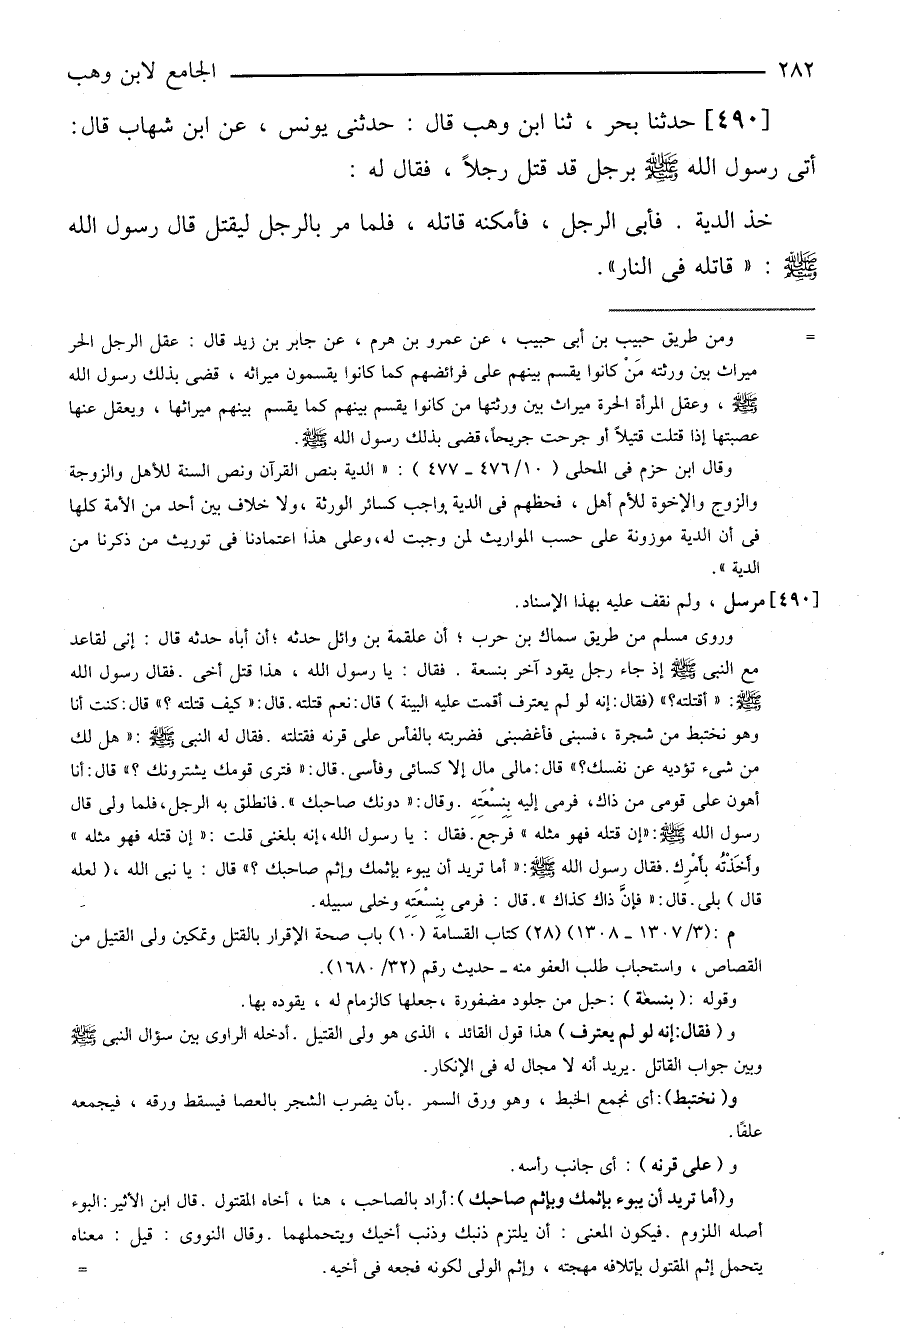 ٢٨٢ الجامع لابن وهب
[٤٩٠] حدثنا بحر ، ثنا ابن وهب قال : حدثنى يونس ، عن ابن شهاب قال :
أتى رسول الله ﷺ برجل قد قتل رجلاً ، فقال له :
خذ الدية . فأبى الرجل ، فأمكنه قاتله ، فلما مر بالرجل ليقتل قال رسول الله
ﷺ : « قاتله فى النار».
= ومن طريق حبيب بن أبى حبيب ، عن عمرو بن هرم ، عن جابر بن زيد قال : عقل الرجل الحر
ميراث بين ورثته مَنْ كانوا يقسم بينهم على فرائضهم كما كانوا يقسمون ميراثه ، قضى بذلك رسول الله
ﷺ ، وعقل المرأة الحرة ميراث بين ورثتها من كانوا يقسم بينهم كما يقسم بينهم ميراثها ، ويعقل عنها
عصبتها إذا قتلت قتيلاً أو جرحت جريحاً، قضى بذلك رسول الله ﷺ.
وقال ابن حزم فى المحلى ( ١٠/ ٤٧٦ ـ ٤٧٧ ) : « الدية بنص القرآن ونص السنة للأهل والزوجة
والزوج والإخوة للأم أهل ، فحظهم فى الدية واجب كسائر الورثة ،ولا خلاف بين أحد من الأمة كلها
فى أن الدية موزونة على حسب المواريث لمن وجبت له،وعلى هذا اعتمادنا فى توريث من ذكرنا من
الدية ».
[٤٩٠] مرسل ، ولم نقف عليه بهذا الإسناد.
وروى مسلم من طريق سماك بن حرب ؛ أن علقمة بن وائل حدثه ؛أن أباه حدثه قال : إنى لقاعد
مع النبى ﷺ إذ جاء رجل يقود آخر بنسعة . فقال : يا رسول الله ، هذا قتل أخى .فقال رسول الله
ﷺ: « أقتلته؟» (فقال:إنه لو لم يعترف أقمت عليه البينة ) قال:نعم قتلته.قال:« كيف قتلته ؟» قال:كنت أنا
وهو نختبط من شجرة ،فسبنى فأغضبنى فضربته بالفأس على قرنه فقتلته .فقال له النبى ﷺ :« هل لك
من شىء تؤديه عن نفسك؟» قال:مالى مال إلا كسائى وفأسى.قال:« فترى قومك يشترونك ؟» قال:أنا
أهون على قومى من ذاك، فرمى إليه بِنِسْعَتِهِ .وقال:« دونك صاحبك ».فانطلق به الرجل،فلما ولى قال
رسول الله ﷺ:«إن قتله فهو مثله » فرجع.فقال : يا رسول الله،إنه بلغنى قلت :« إن قتله فهو مثله »
وأَخَذْتُه بأَمْرِك.فقال رسول الله ﷺ:« أما تريد أن يبوء بإثمك وإثم صاحبك ؟» قال : يا نبى الله ،( لعله
قال ) بلى.قال:« فإنَّ ذاك كذاك ».قال : فرمى بِنِسْعَتِهِ وخلى سبيله.
م :(٣/ ١٣٠٧ ـ ١٣٠٨) (٢٨) كتاب القسامة (١٠) باب صحة الإقرار بالقتل وتمكين ولى القتيل من
القصاص ، واستحباب طلب العفو منه ـ حديث رقم (٣٢/ ١٦٨٠).
وقوله :( بنسعة ) :حبل من جلود مضفورة ،جعلها كالزمام له ، يقوده بها.
و ( فقال:إنه لو لم يعترف ) هذا قول القائد ، الذى هو ولى القتيل .أدخله الراوى بين سؤال النبى ﷺ
وبين جواب القاتل .يريد أنه لا مجال له فى الإنكار.
و( نختبط):أى نجمع الخبط ، وهو ورق السمر .بأن يضرب الشجر بالعصا فيسقط ورقه ، فيجمعه
علفًا.
و ( على قرنه ) : أى جانب رأسه.
و(أما تريد أن يبوء بإثمك وبإثم صاحبك ):أراد بالصاحب ، هنا ، أخاه المقتول .قال ابن الأثير:البوء
أصله اللزوم .فيكون المعنى : أن يلتزم ذنبك وذنب أخيك ويتحملهما .وقال النووى : قيل : معناه
يتحمل إثم المقتول بإتلافه مهجته ، وإثم الولى لكونه فجعه فى أخيه. =